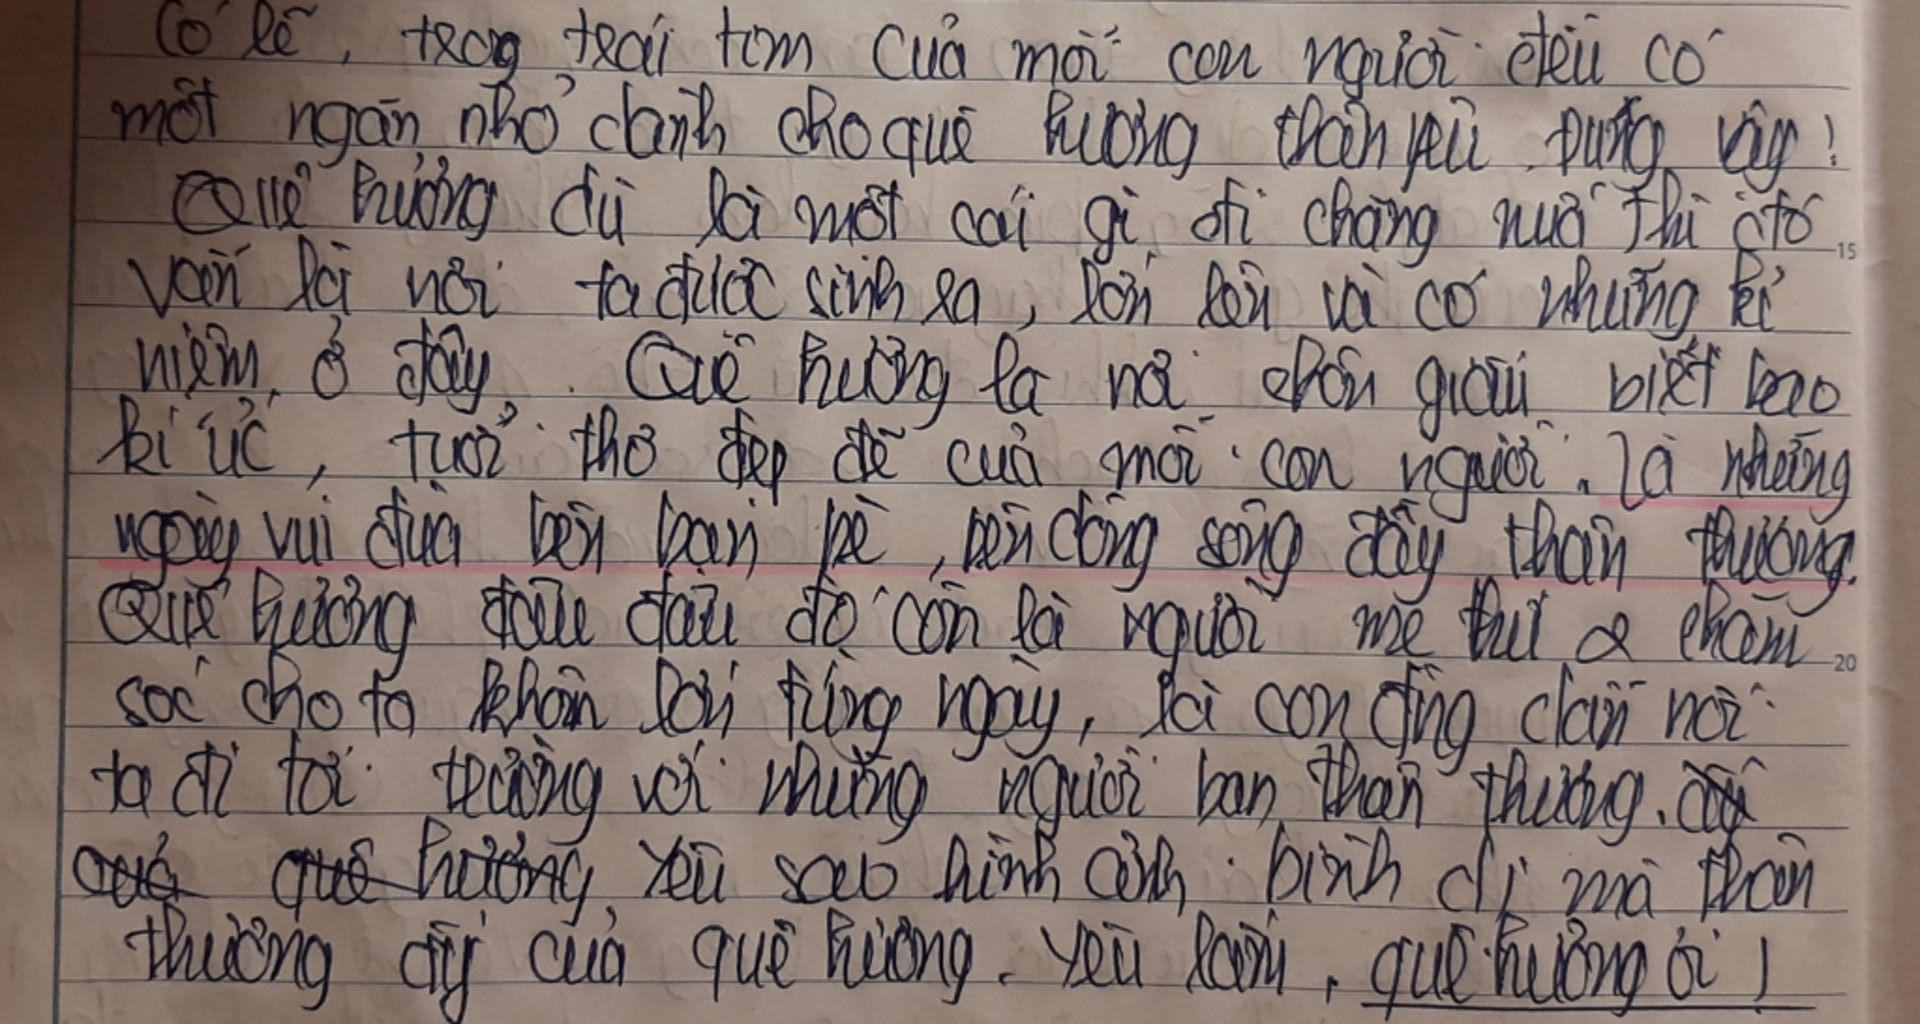 Có lẽ, trong trái tim của mỗi con người đều có
một ngăn nhỏ dành cho quê hương thân yêu. Đúng vậy!
Quê hương dù là một cái gì đi chăng nữa thì đó
vẫn là nơi ta được sinh ra, lớn lên và có những kỉ
niệm ở đây. Quê hương là nơi chôn giấu biết bao
kí ức, tuổi thơ đẹp đẽ của mỗi con người. Là những
ngày vui đùa bên bạn bè, bên dòng sông đầy thân thương.
Quê hương đâu đâu đó còn là người mẹ thứ 2 chăm
sóc cho ta khôn lớn từng ngày, là con đng dẫn nơi
ta đi tới trường với những người bạn thân thương.
yêu sao hình ảnh bình dị mà thân
thương ấy của quê hương. Yêu lắm, quê hương ơi!
15
20